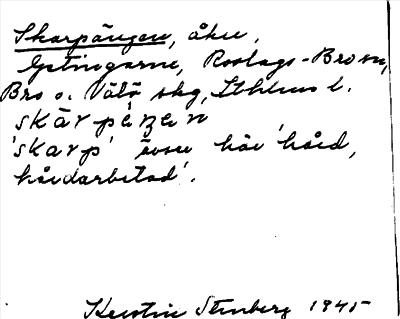 Skarpängen, åker,
Getingarne, Roslags-Bro sn,
Bro o. Vätö skg, Sthlms l.
skàrpéŋen
'skarp' även här 'hård,
hårdarbetad'.
Kerstin Stenberg 1945